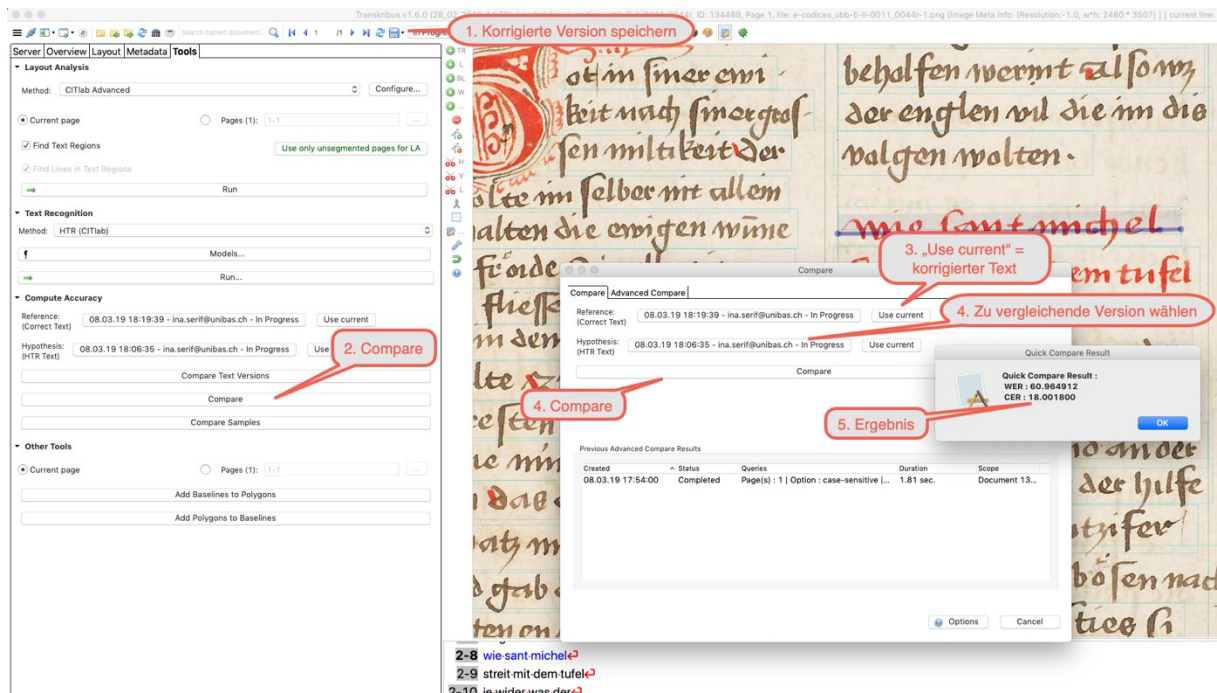 Transkribus v1.6.0 (28_02_2019
134489, Page 1, file: e-codices_ubb-E-II-0011_0044r-1.png [Image Meta Info: (Resolution:-1.0, w*h: 2480 * 3507) ] [ current line:
1. Korrigierte Version speichern
Search current document...
1
/1
Server Overview Layout Metadata Tools
Layout Analysis
Method: CITlab Advanced Configure...
Current page Pages (1): 1-1 ...
Find Text Regions Use only unsegmented pages for LA
Find Lines in Text Regions
Run
Text Recognition
Method: HTR (CITlab)
Models...
Run...
Compute Accuracy
Reference:
(Correct Text)
08.03.19 18:19:39 - ina.serif@unibas.ch - In Progress Use current
Hypothesis:
(HTR Text)
08.03.19 18:06:35 - ina.serif@unibas.ch - In Progress Use
2. Compare
Compare Text Versions
Compare
Compare Samples
Other Tools
Current page Pages (1): 1-1 ...
Add Baselines to Polygons
Add Polygons to Baselines
TR
L
BL
W
...
H
V
L
ot in siner ewi
keit nach siner gros
sen miltikeit der
wolte im selber nit allein
alten die ewigen wune
froide
fliesse
beholfen wermt also wz
der englen vil die im die
volgen wolten.
wie sant michel
em tufel
3. „Use current“ =
korrigierter Text
Compare
Compare Advanced Compare
Reference:
(Correct Text)
08.03.19 18:19:39 - ina.serif@unibas.ch - In Progress Use current
4. Zu vergleichende Version wählen
Hypothesis:
(HTR Text)
08.03.19 18:06:35 - ina.serif@unibas.ch - In Progress Use current
Compare
4. Compare
Quick Compare Result
Quick Compare Result :
WER : 60.964912
CER : 18.001800
OK
5. Ergebnis
Previous Advanced Compare Results
Created Status Queries Duration Scope
08.03.19 17:54:00 Completed Page(s) : 1 | Option : case-sensitive |... 1.81 sec. Document 13...
Options Cancel
der hilfe
bösen nac
2-8 wie·sant·michel
2-9 streit·mit·dem·tufel
2-10 ie·wider·was·der